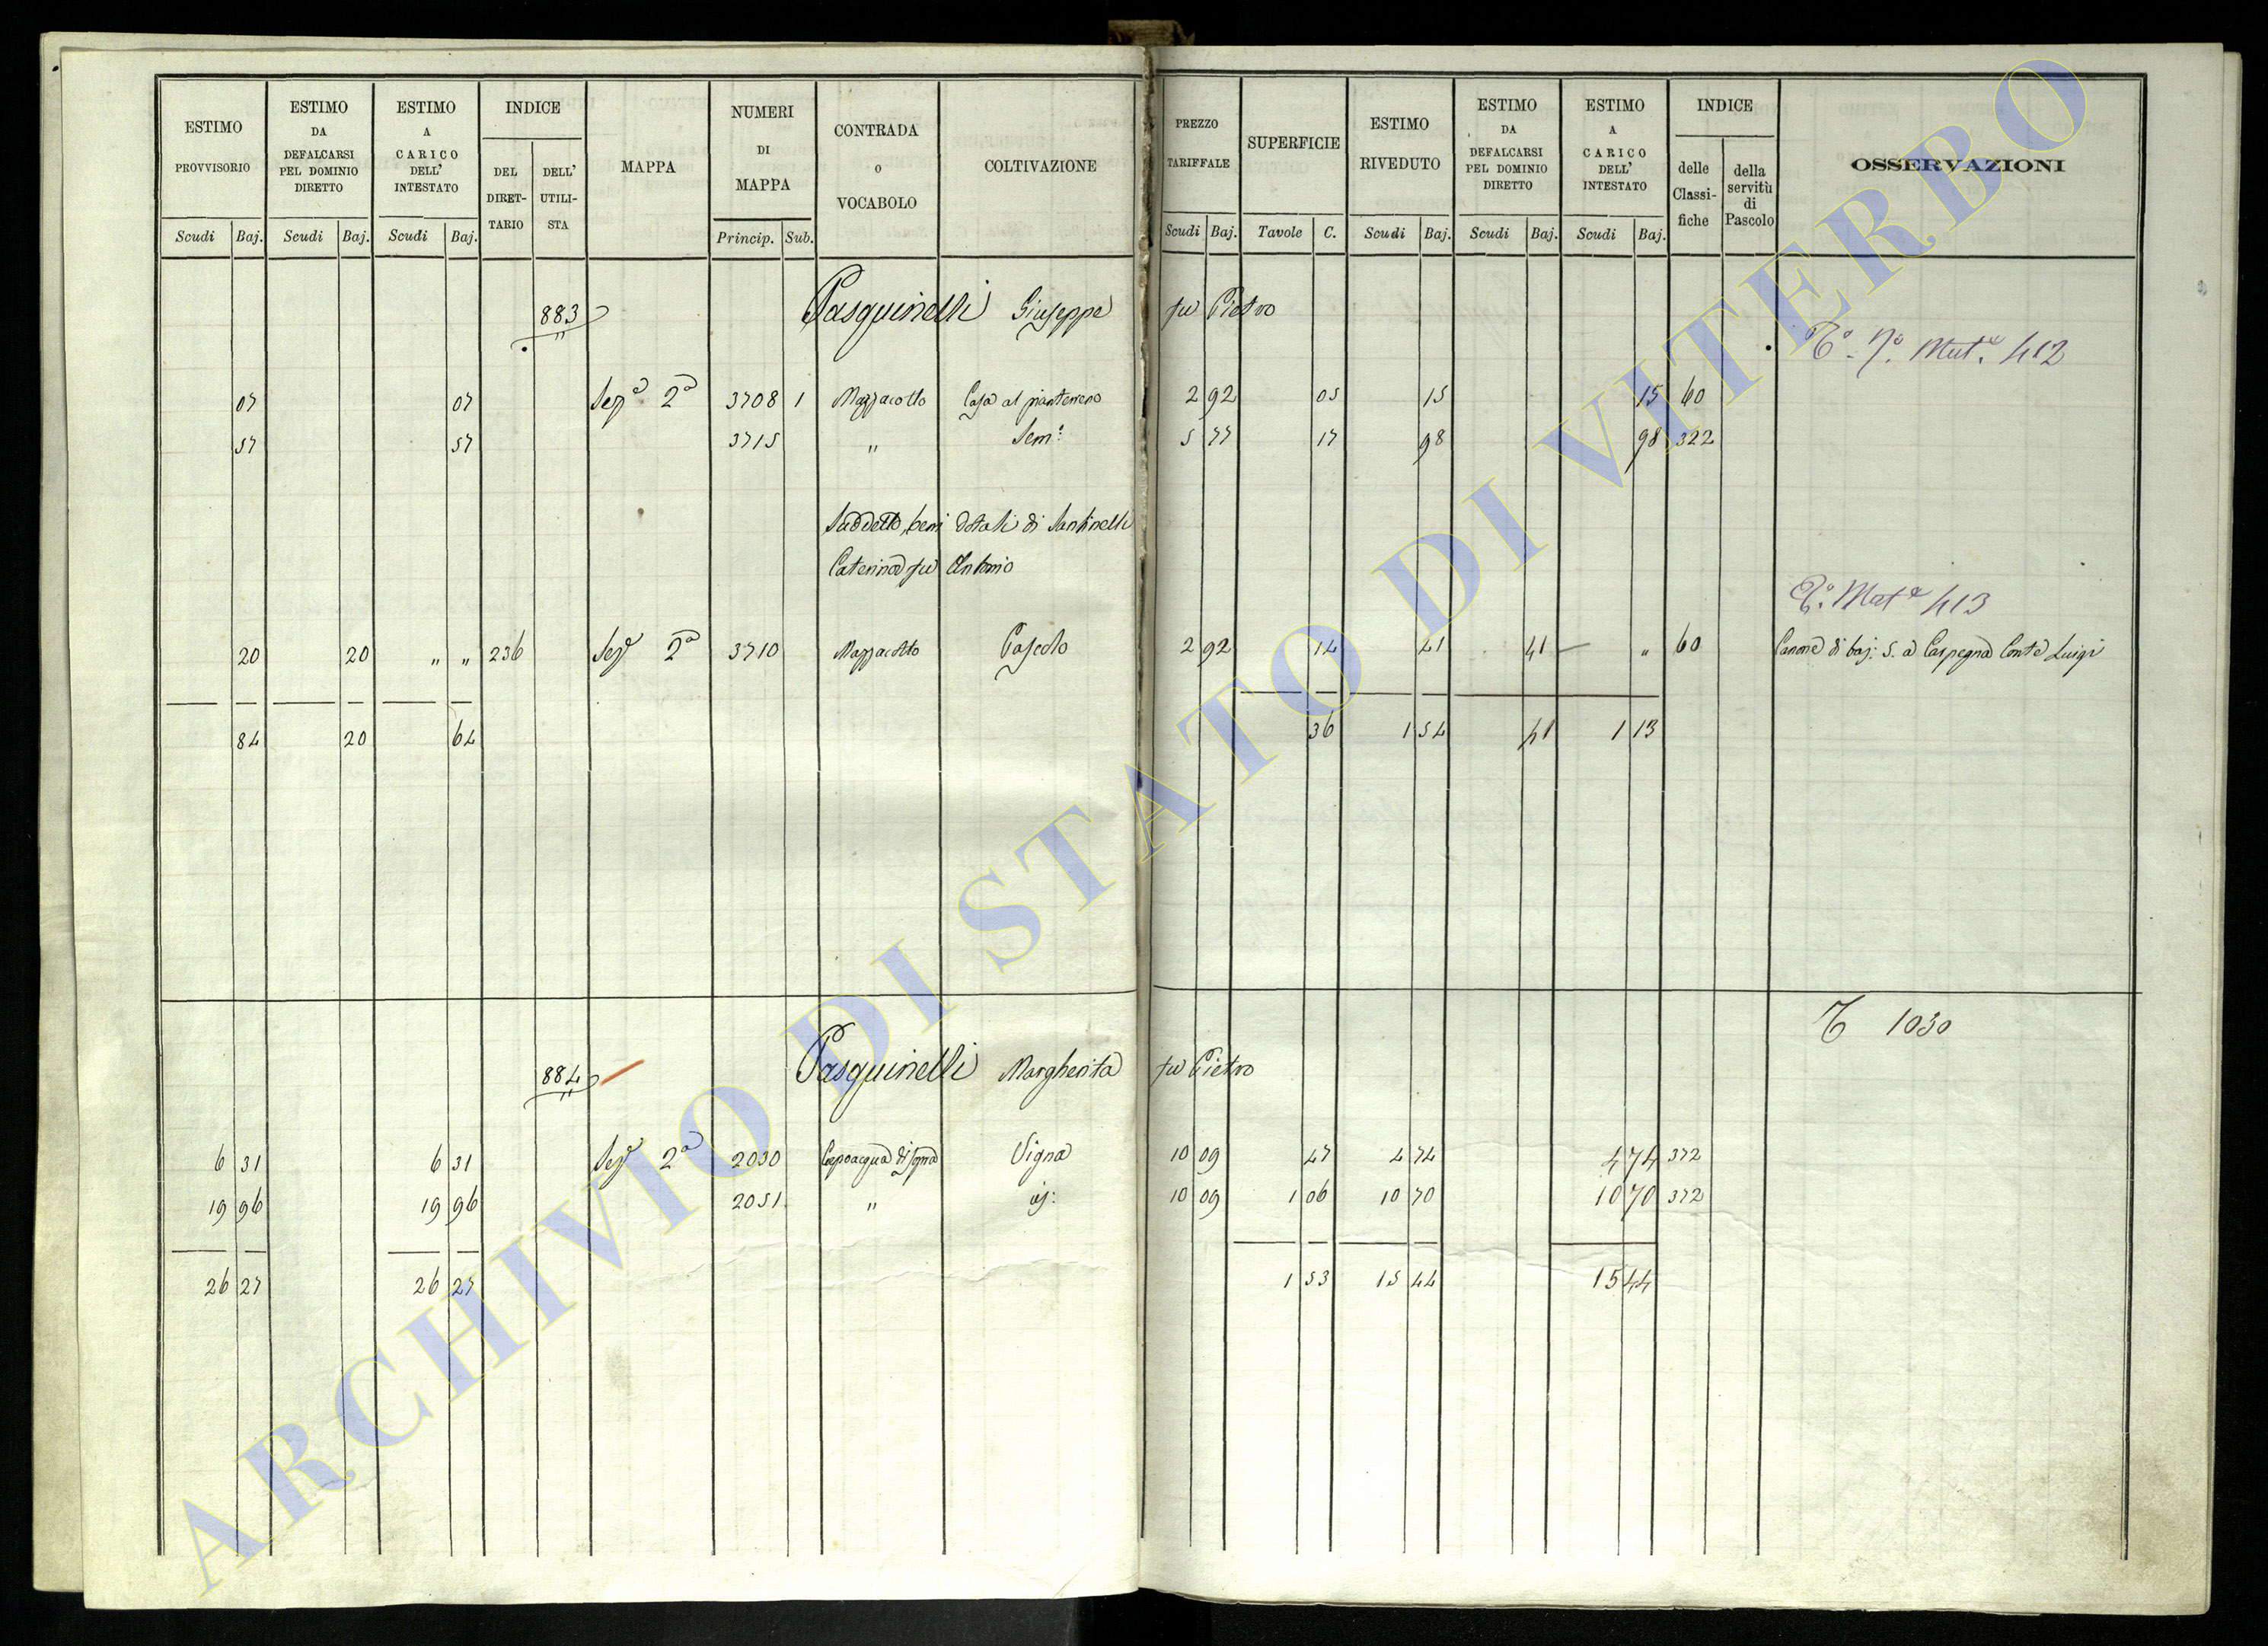 ESTIMO PROVVISORIO
ESTIMO DA DEFALCARSI PEL DOMINIO DIRETTO
ESTIMO A CARICO DELL' INTESTATO
INDICE
DEL DIRET-TARIO
DELL' UTILI-STA
MAPPA
NUMERI DI MAPPA
CONTRADA o VOCABOLO
COLTIVAZIONE
PREZZO TARIFFALE
SUPERFICIE
ESTIMO RIVEDUTO
ESTIMO DA DEFALCARSI PEL DOMINIO DIRETTO
ESTIMO A CARICO DELL' INTESTATO
INDICE
delle Classi-fiche
della servitù di Pascolo
OSSERVAZIONI
Scudi Baj. Scudi Baj. Scudi Baj. Princip. Sub. Scudi Baj. Tavole C. Scudi Baj. Scudi Baj. Scudi Baj.
883 Pasquinelli Giuseppe fu Pietro
Mut.e 412
07 07 Sez.e 2a 3708 1 Mazzacotto Casa al pianterreno 2 92 05 15 15 60
57 57 3715 " Sem.o 5 77 17 98 98 322
Suddetto beni dotali di Santinelli
Caterina fu Antonio
Mut.e 413
20 20 " " 236 Sez.e 2a 3710 Mazzacotto Casedo 2 92 14 41 41 " 60 Canone di baj: 5. a Carpegna Conte Luigi
84 20 64 36 1 54 41 1 13
1030
884 Pasquinelli Margherita fu Pietro
6 31 6 31 Sez.e 2a 2030 Capoacqua di sopra Vigna 10 09 47 4 74 4 74 372
19 96 19 96 2051 " id: 10 09 1 06 10 70 10 70 372
26 27 26 27 1 53 15 44 15 44
ARCHIVIO DI STATO DI VITERBO